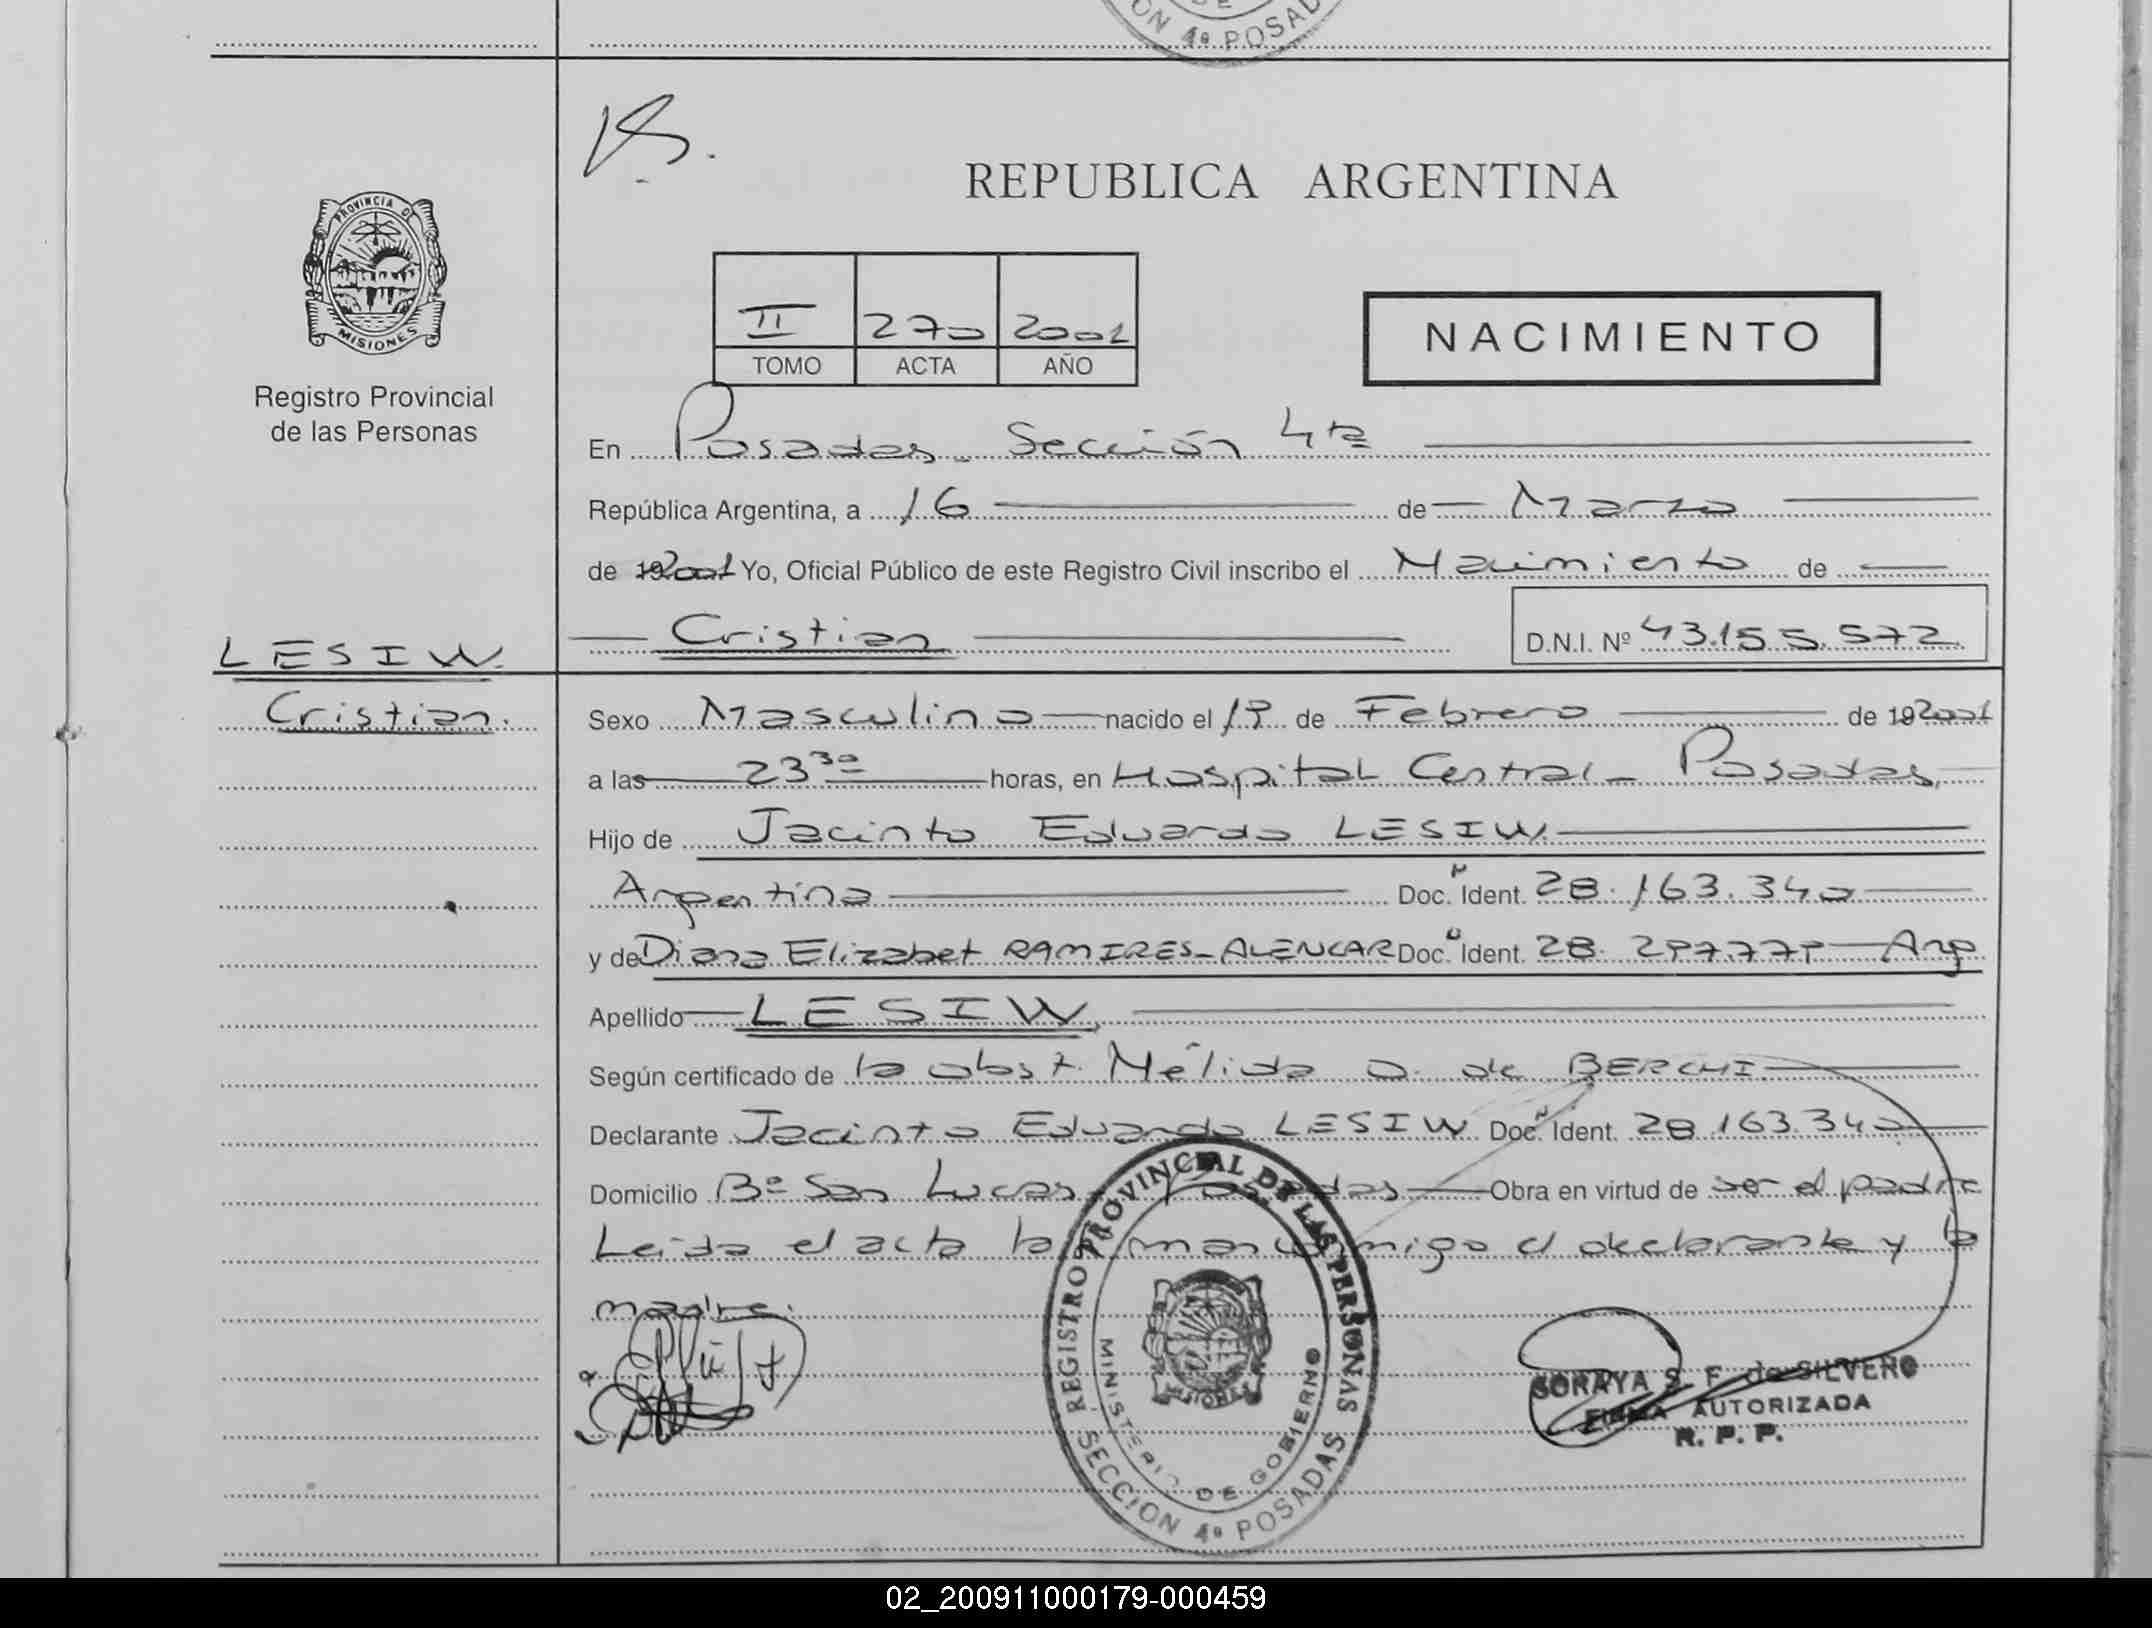 ON 4ª POSAD
REPUBLICA ARGENTINA
PROVINCIA DE
MISIONES
II 270 2001
TOMO ACTA AÑO
NACIMIENTO
Registro Provincial
de las Personas
En Posadas. Sección 4ta
República Argentina, a 16 de Marzo
de 192001 Yo, Oficial Público de este Registro Civil inscribo el Nacimiento de
Cristian D.N.I. Nº 43.155.572
LESIW
Cristian.
Sexo Masculino nacido el 19 de Febrero de 192001
a las 23³⁰ horas, en Hospital Central - Posadas,
Hijo de Jacinto Eduardo LESIW.
Argentina Doc. N Ident. 28.163.340
y de Diana Elizabet RAMIRES-ALENCAR Doc. Ident. 28.297.779 Arg
Apellido LESIW,
Según certificado de la obst. Nélida O. de BERCHI.
Declarante Jacinto Eduardo LESIW Doc. N Ident. 28.163.340
Domicilio Bº San Lucas Posadas Obra en virtud de ser el padre
Leida el acta la firman conmigo el declarante y la
madre.
REGISTRO PROVINCIAL DE LAS PERSONAS
MINISTERIO DE GOBIERNO
SECCION 4ª POSADAS
SORAYA S. F. de SILVERO
FIRMA AUTORIZADA
R. P. P.
02_200911000179-000459